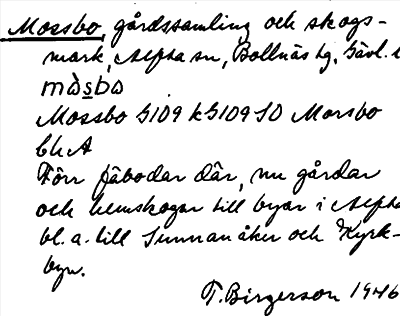 Mossbo, gårdssamling och skogs-
mark, Alfta sn, Bollnäs tg, Gävl. l
mòsbo
Mossbo G109 k G109 SO Morsbo
bl. A
Förr fäbodar där, nu gårdar
och hemskogar till byar i Alfta
bl. a. till Sunnanåker och Kyrk-
byn.
T. Birgerson 1946